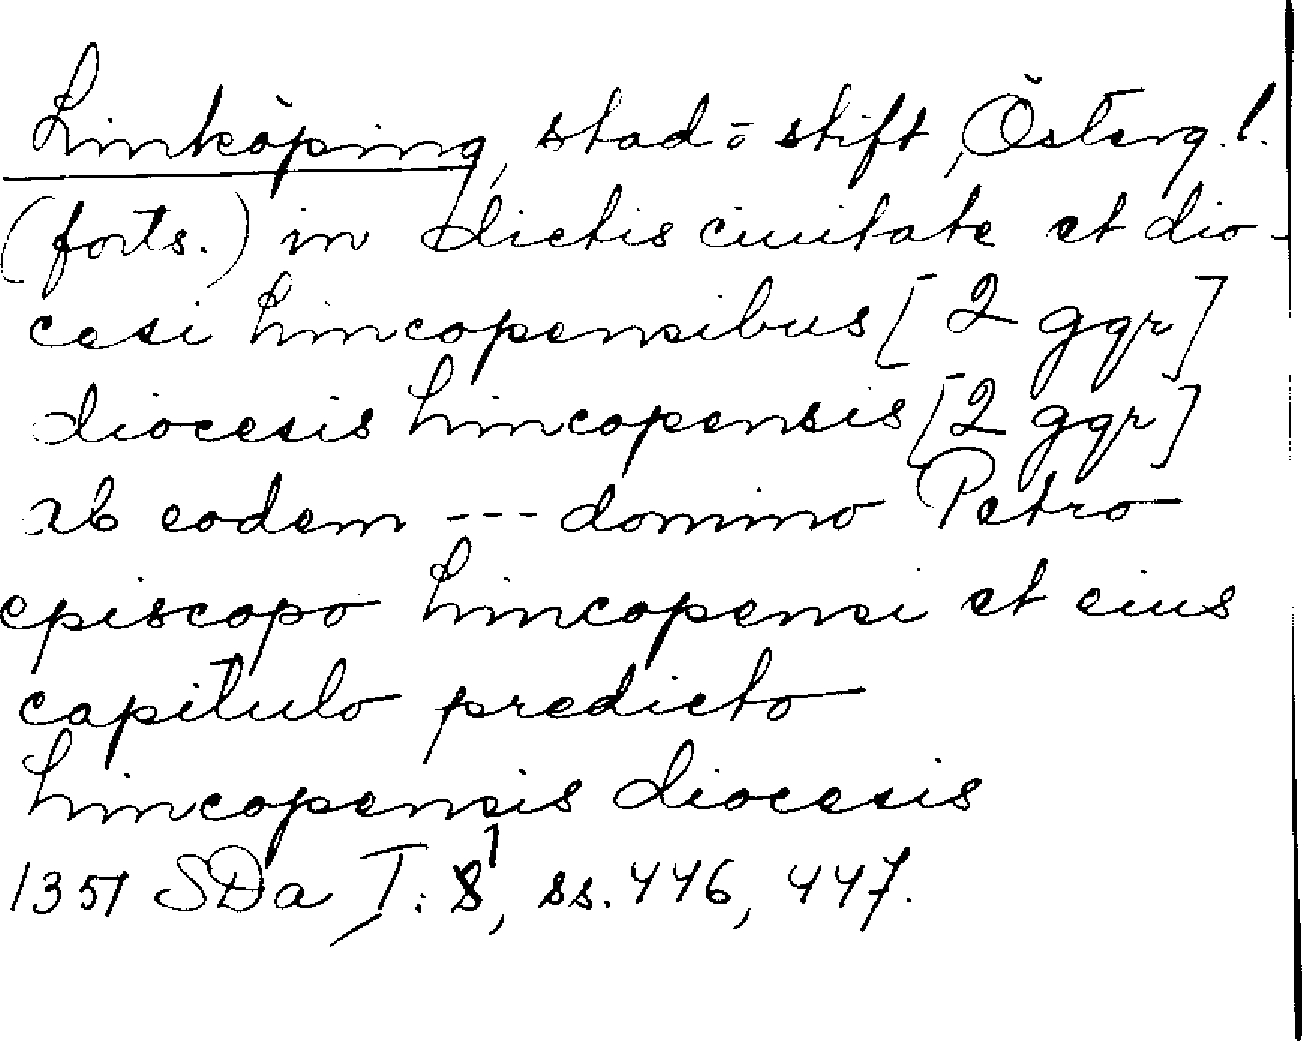 Linköping, stad = stift, Österg. l.
(forts.) in dictis ciuitate et dio-
cesi lincopensibus [2 ggr]
diocesis lincopensis [2 ggr]
ab eodem --- domino Petro
episcopo lincopensi et eius
capitulo predicto
lincopensis diocesis
1351 SDa I: 8¹, ss. 446, 447.